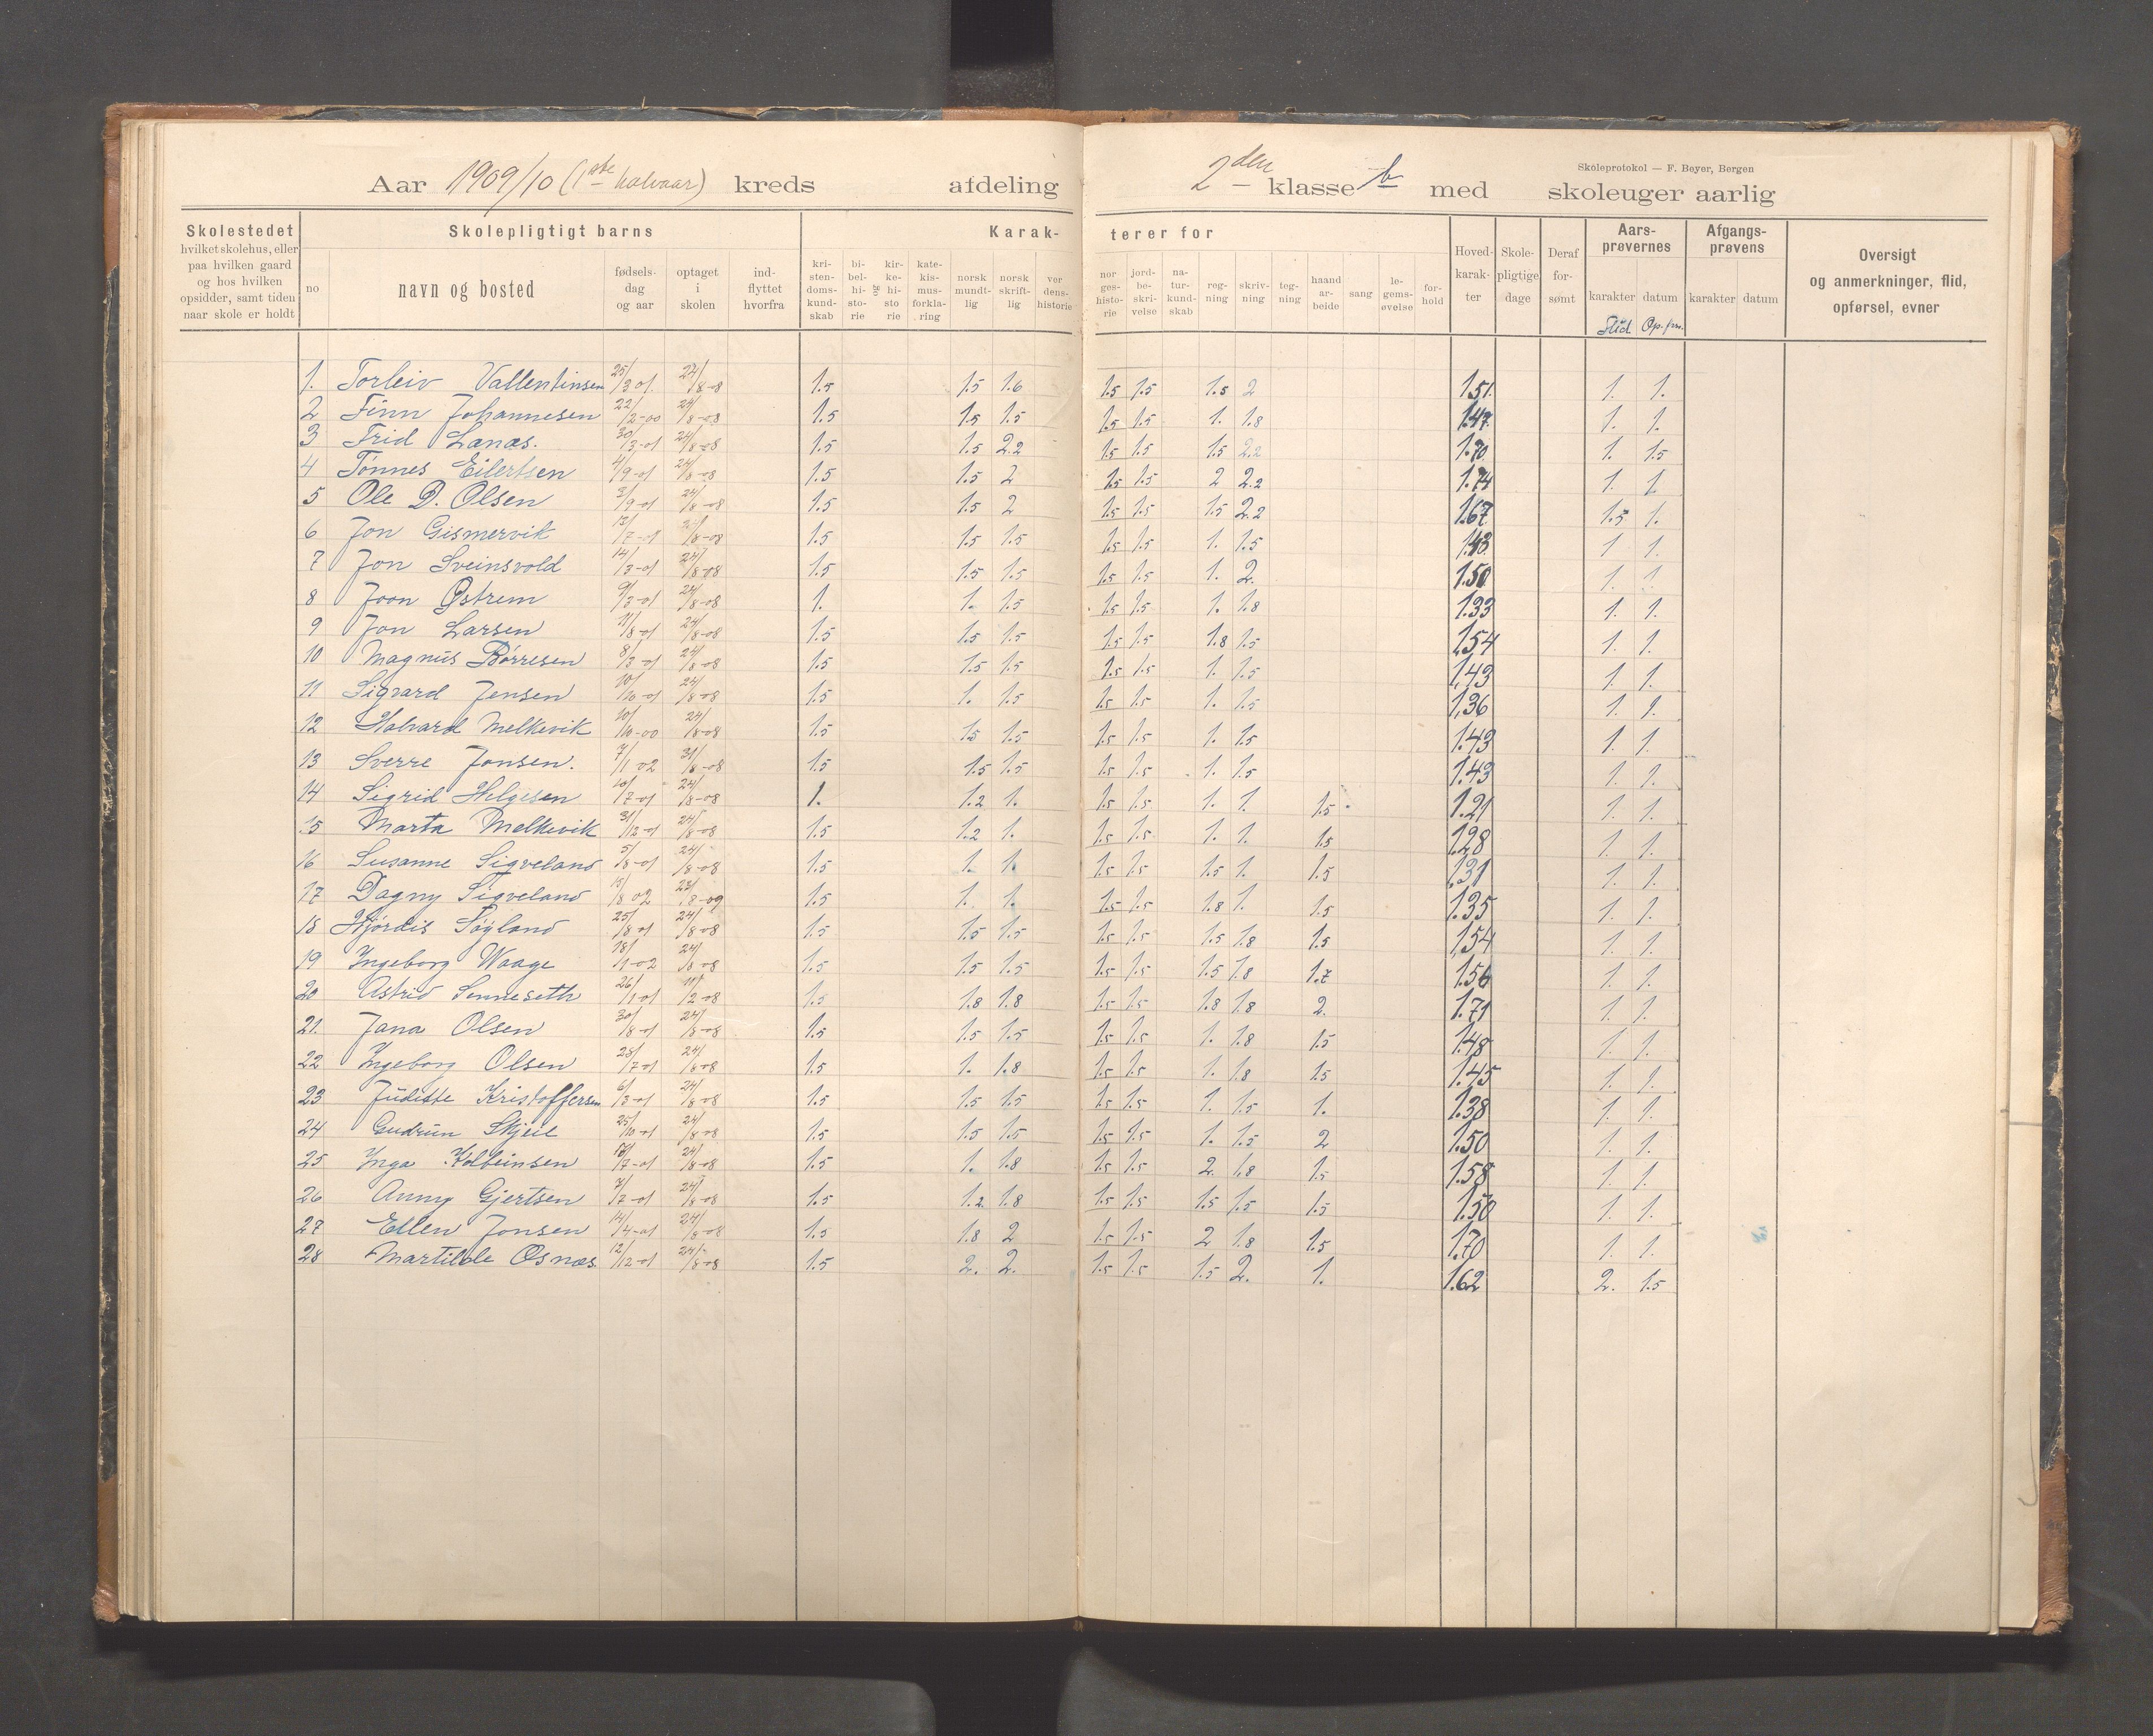 Skoleprotokol — F. Beyer, Bergen
Aar 1909/10 (1ste halvaar) kreds afdeling 2den klasse b med skoleuger aarlig
Skolestedet hvilket skolehus, eller paa hvilken gaard og hos hvilken opsidder, samt tiden naar skole er holdt
Skolepligtigt barns
no navn og bosted fødsels-dag og aar optaget i skolen ind-flyttet hvorfra
Karak- terer for
kri-sten-doms-kund-skab bi-bel-hi-sto-rie og kir-ke-hi-sto rie kate-kis-mus-forkla-ring norsk mundt-lig norsk skrift-lig ver dens-historie
nor ges-histo-rie jord-be-skri-velse na-tur-kund-skab reg-ning skriv-ning teg-ning haand ar-beide sang le-gems-øvelse for-hold
Hoved-karak-ter Skole-pligtige dage Deraf for-sømt
Aars-prøvernes karakter datum
Afgangs-prøvens karakter datum
Oversigt og anmerkninger, flid, opførsel, evner
Flid Op.før.
1. Torleiv Vallentinsen 25/3 01 24/8-08 1.5 1.5 1.6 1.5 1.5 1.5 2 1.51. 1. 1.
2 Finn Johannesen 22/2-00 24/8-08 1.5 1.5 1.5 1.5 1.5 1. 1.8 1.47. 1. 1.
3 Frid Lanæs. 30/3-01 24/8-08 1.5 1.5 2.2 1.5 1.5 1.5 2.2 1.70 1. 1.5
4 Tønnes Eilertsen 4/9-01 24/8-08 1.5 1.5 2 1.5 1.5 2 2.2 1.74 1. 1
5 Ole D. Olsen 3/9-01 24/8-08 1.5 1.5 2 1.5 1.5 1.5 2.2 1.67 1.5 1.
6 Jon Gismervik 13/7-01 24/8-08 1.5 1.5 1.5 1.5 1.5 1. 1.5 1.43 1 1.
7 Jon Sveinsvold 14/3-01 24/8-08 1.5 1.5 1.5 1.5 1.5 1. 2. 1.50 1. 1.
8 Joon Østrem 9/3-01 24/8-08 1. 1. 1.5 1.5 1.5 1. 1.8 1.33 1. 1.
9 Jon Larsen 11/8-01 24/8-08 1.5 1.5 1.5 1.5 1.5 1.8 1.5 1.54 1. 1.
10 Magnus Børresen 8/3-01 24/8-08 1.5 1.5 1.5 1.5 1.5 1. 1.5 1,43 1 1.
11 Sigvard Jensen 10/10-01 24/8-08 1.5 1. 1.5 1.5 1.5 1. 1.5 1,36 1. 1.
12 Halvard Melkevik 10/10-00 24/8-08 1.5 1.5 1.5 1.5 1.5 1. 1.5 1.43 1. 1.
13 Sverre Jonsen. 7/1 02 31/8-08 1.5 1.5 1.5 1.5 1.5 1. 1.5 1.43 1. 1.
14 Sigrid Helgesen 10/7-01 24/8-08 1. 1.2 1. 1.5 1.5 1. 1. 1.5 1.21 1. 1.
15 Marta Melkevik 31/12-01 24/8-08 1.5 1.2 1. 1.5 1.5 1. 1. 1.5 1.28 1. 1.
16 Susanne Sigveland 5/8-01 24/8-08 1.5 1. 1. 1.5 1.5 1.5 1. 1.5 1.31 1. 1.
17 Dagny Sigveland 15/8 02 23/8-09 1.5 1. 1. 1.5 1.5 1.8 1. 1.5 1.35 1. 1.
18 Hjørdis Søyland 25/8 01 24/8-08 1.5 1.5 1.5 1.5 1.5 1.5 1.8 1.5 1,54 1. 1.
19 Ingeborg Waage 18/1-02 24/8-08 1.5 1.5 1.5 1.5 1.5 1.5 1.8 1.7 1.56 1. 1.
20 Astrid Senneseth 26/1-01 11/2-08 1.5 1.8 1.8 1.5 1.5 1.8 1.8 2. 1.71 1. 1.
21. Jana Olsen 30/8-01 24/8-08 1.5 1.5 1.5 1.5 1.5 1. 1.8 1.5 1.48 1. 1.
22 Ingeborg Olsen 28/7-01 24/8-08 1.5 1. 1.8 1.5 1.5 1. 1.8 1.5 1.45 1. 1.
23 Juditte Kristoffersen 6/3-01 24/8-08 1.5 1.5 1.5 1.5 1.5 1. 1.5 1. 1.38 1. 1.
24 Gudrun Skjeie 25/10-01 24/8-08 1.5 1.5 1.5 1.5 1.5 1. 1.5 2 1.50 1. 1.
25 Inga Kolbeinsen /7-01 24/8-08 1.5 1. 1.8 1.5 1.5 2. 1.8 1.5 1.58 1. 1.
26 Anny Gjertsen 7/7-01 24/8-08 1.5 1.2 1.8 1.5 1.5 1.5 1.5 1.5 1.50 1. 1.
27 Ellen Jonsen 14/4-01 24/8-08 1.5 1.8 2 1.5 1.5 2 1.8 1.5 1.70 1. 1.
28 Martilde Osnæs. 12/12-01 24/8-08 1.5 2. 2. 1.5 1.5 1.5 2. 1. 1.62 2. 1.5